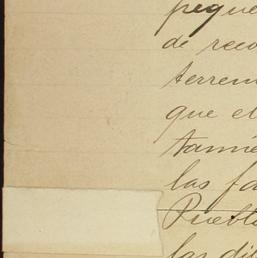 peque
de reco
terren
que el
tamie
las fa
Pueblo
las dil